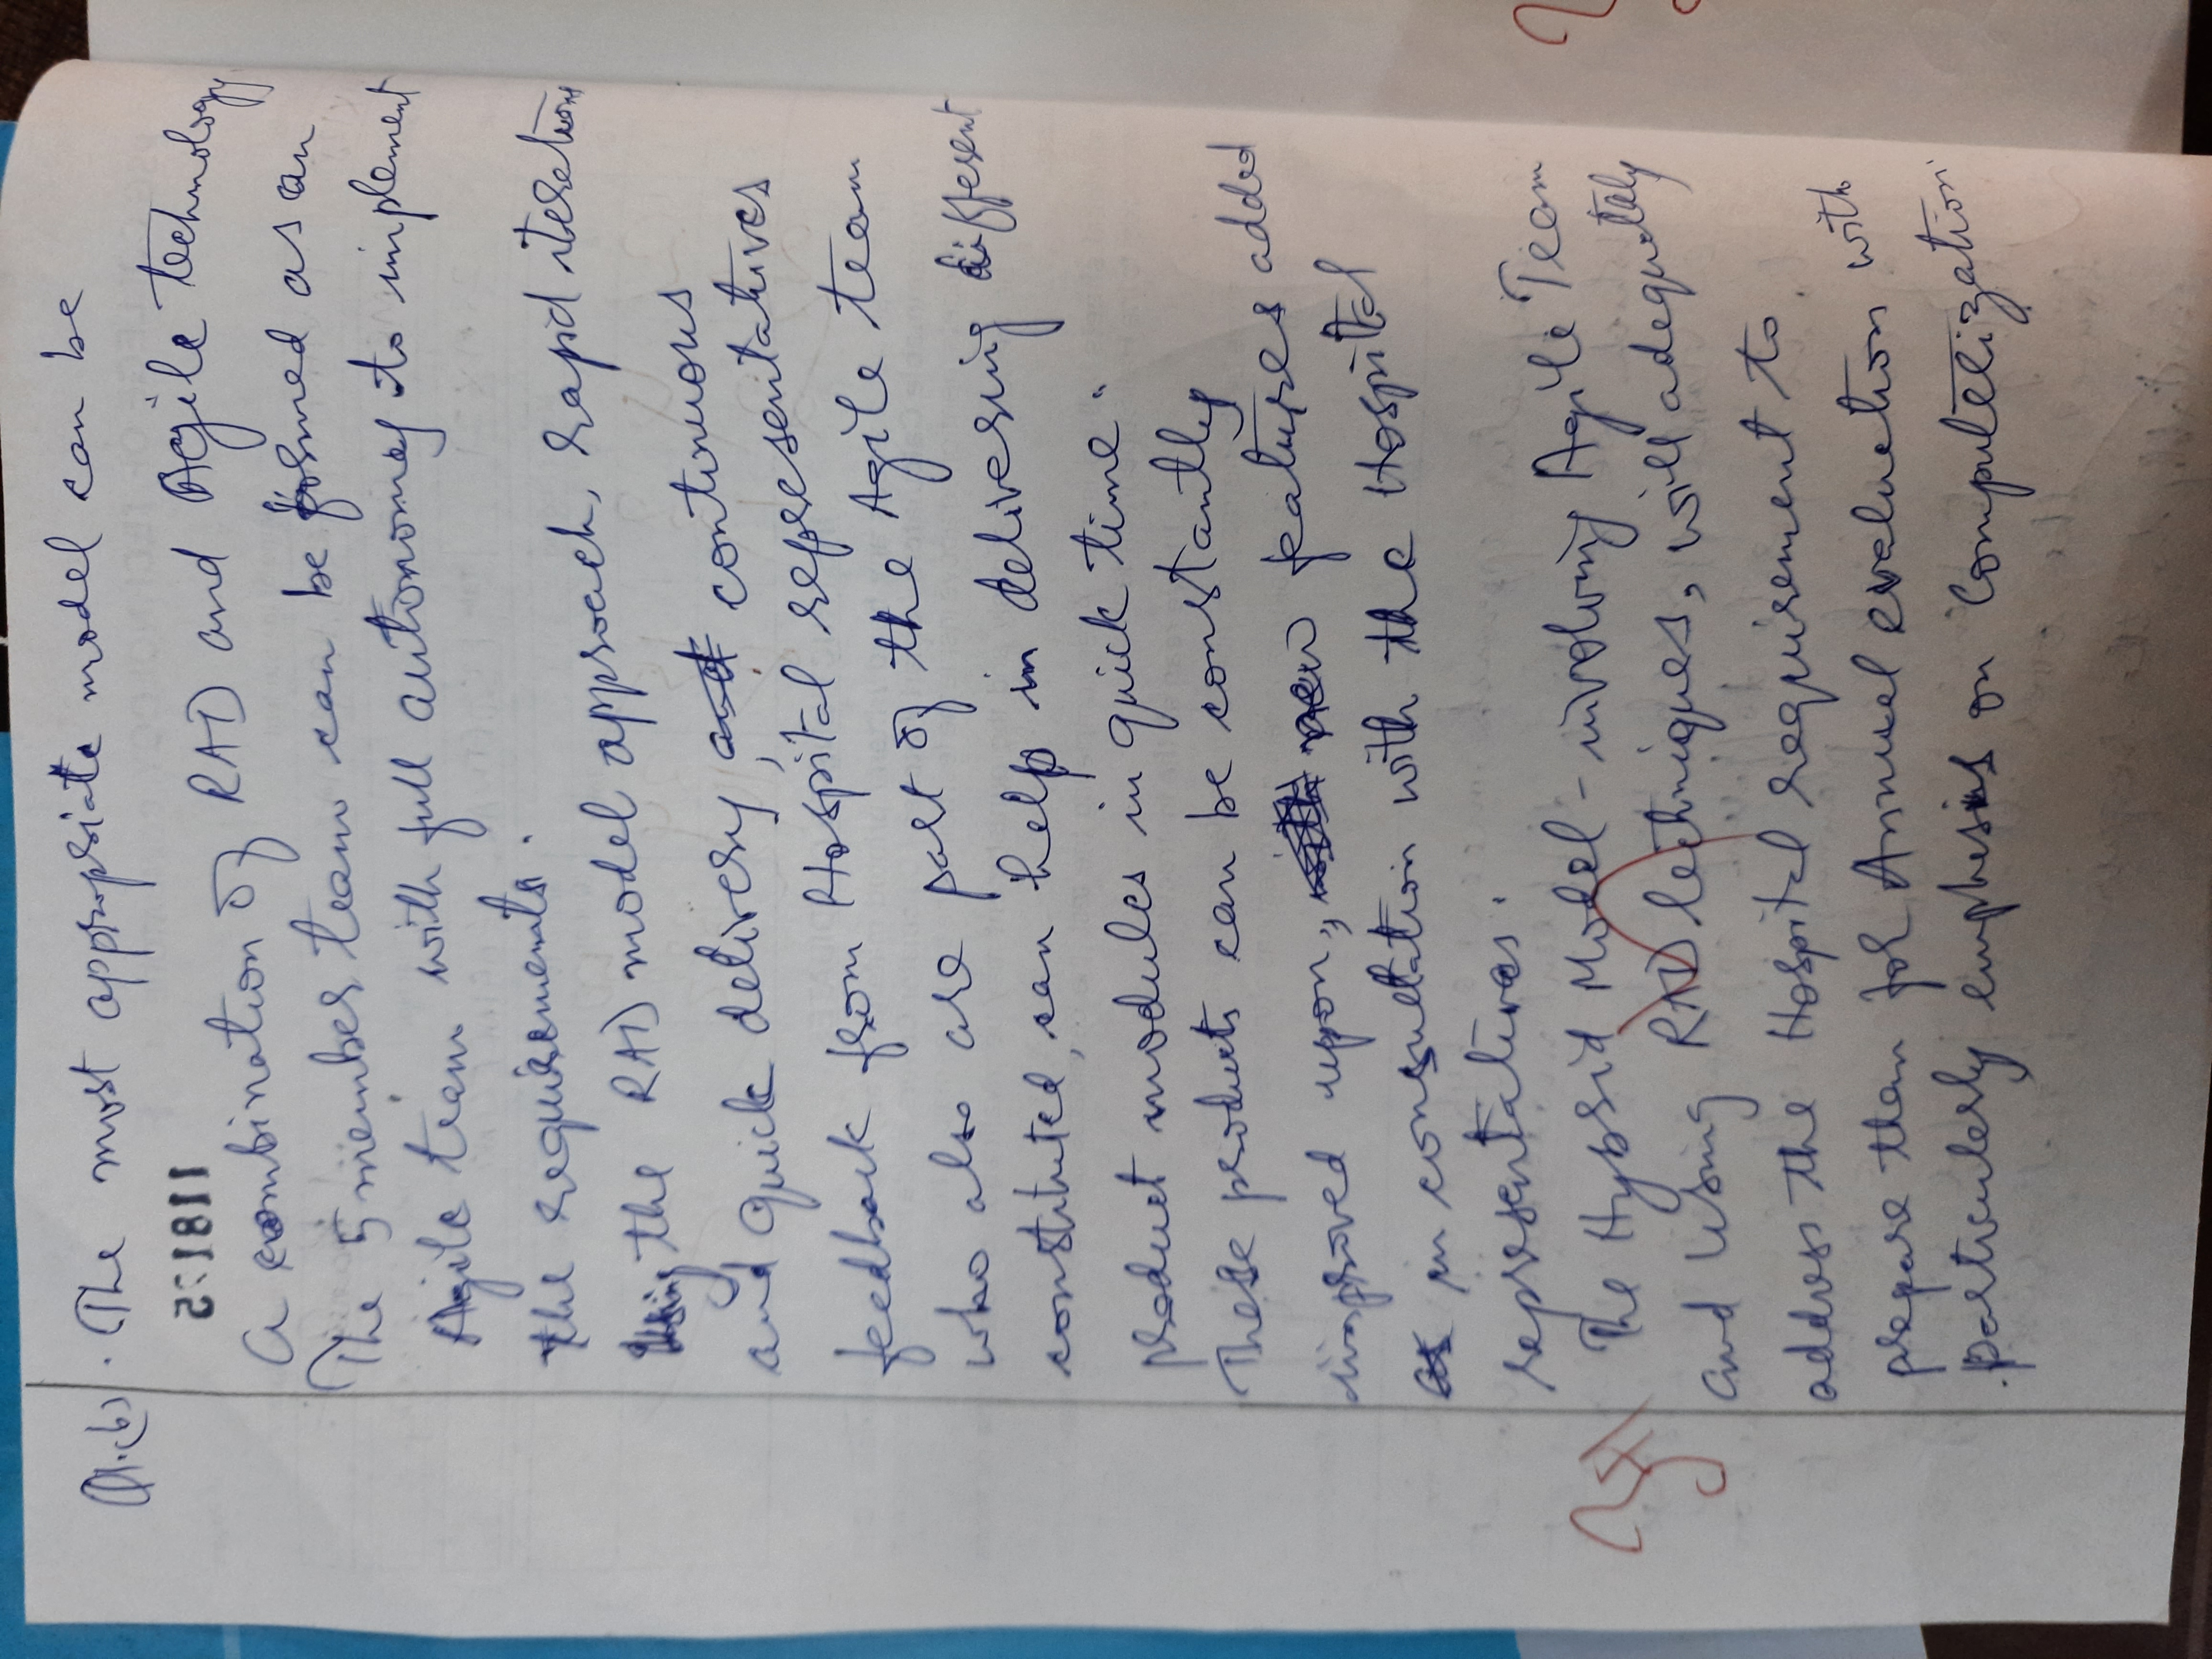 Q1.(b). The most appropriate model can be
118125
a combination of RAD and Agile technology.
The 5 member team can be formed as an
Agile team with full autonomy to implement
the requirements.
Using the RAD model approach, rapid iterations
and quick delivery, and continuous
feedback from Hospital representatives
who also are part of the Agile team
constituted, can help in delivering different
product modules in quick time.
These products can be constantly
improved upon, with new features added
as in consultation with the Hospital
representatives.
The Hybrid Model - involving Agile Team
and Using RAD techniques, will adequately
address the Hospital requirement to
prepare them for Annual evaluation with
particularly emphasis on Computerization.